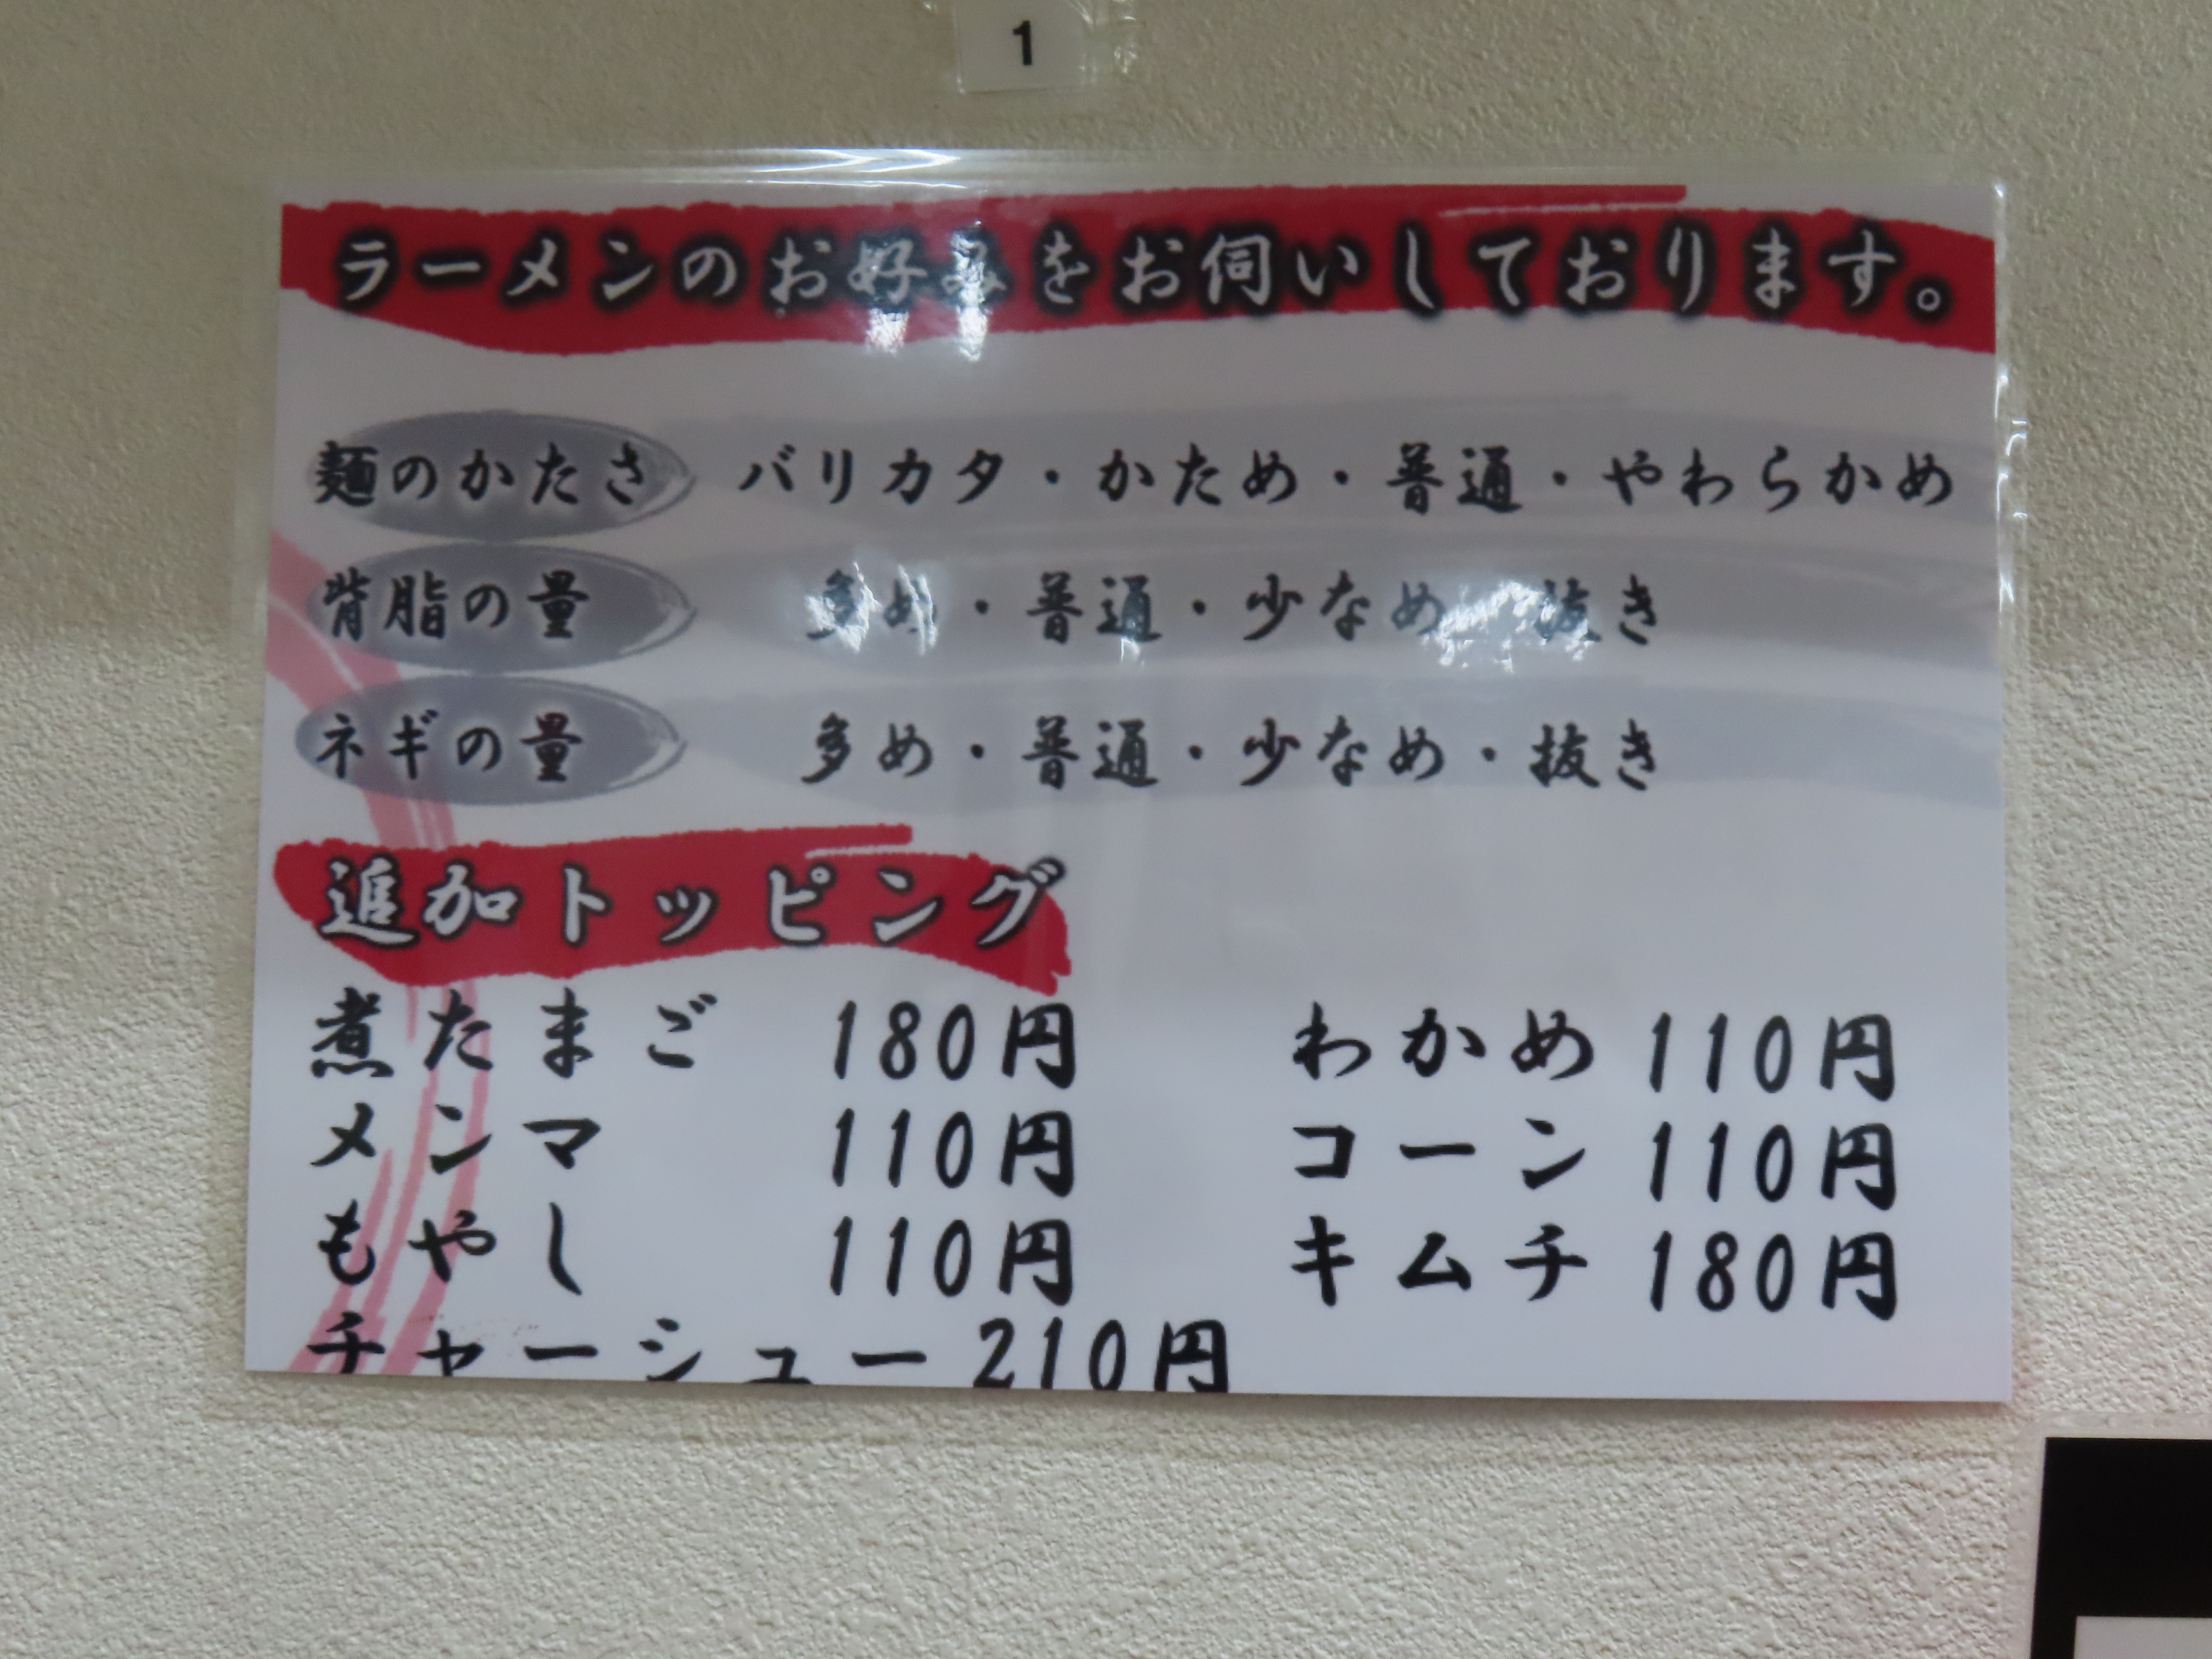 1
ラーメンのお好みをお伺いしております。
麺のかたさ バリカタ・かため・普通・やわらかめ
背脂の量 多め・普通・少なめ・抜き
ネギの量 多め・普通・少なめ・抜き
追加トッピング
煮たまご 180円 わかめ 110円
メンマ 110円 コーン 110円
もやし 110円 キムチ 180円
チャーシュー 210円